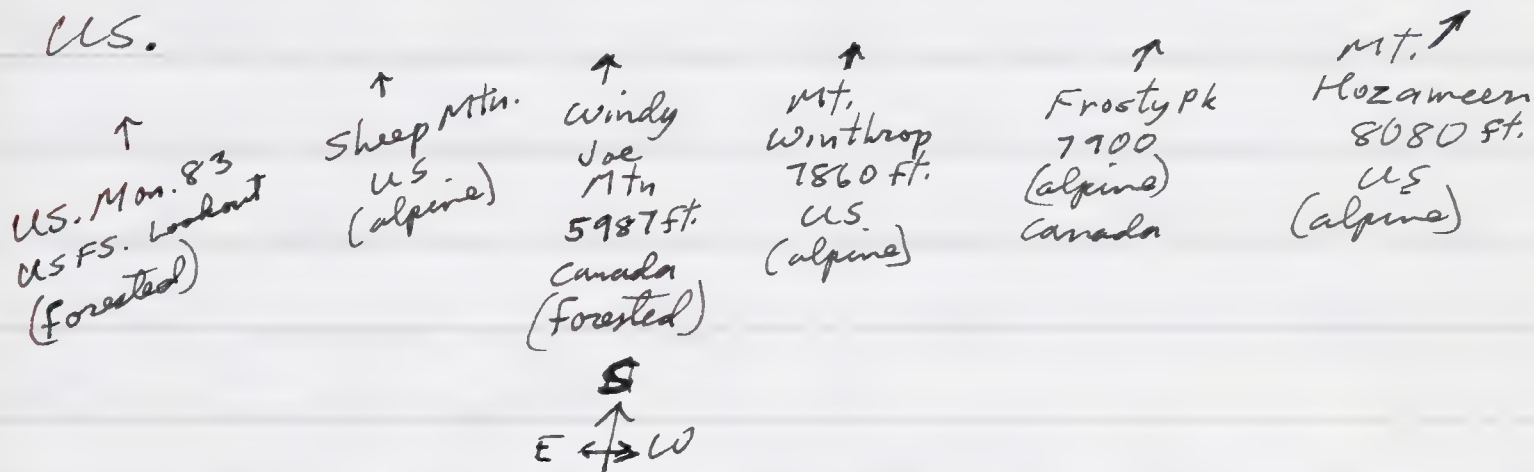 U.S.
U.S. Mon. 83
USFS. Lookout
(forested)
Sheep Mtn.
US.
(alpine)
Windy
Joe
Mtn
5987 ft.
Canada
(forested)
Mt.
Winthrop
7860 ft.
US.
(alpine)
Frosty Pk
7900
(alpine)
Canada
Mt.
Hozameen
8080 ft.
US
(alpine)
S
E W